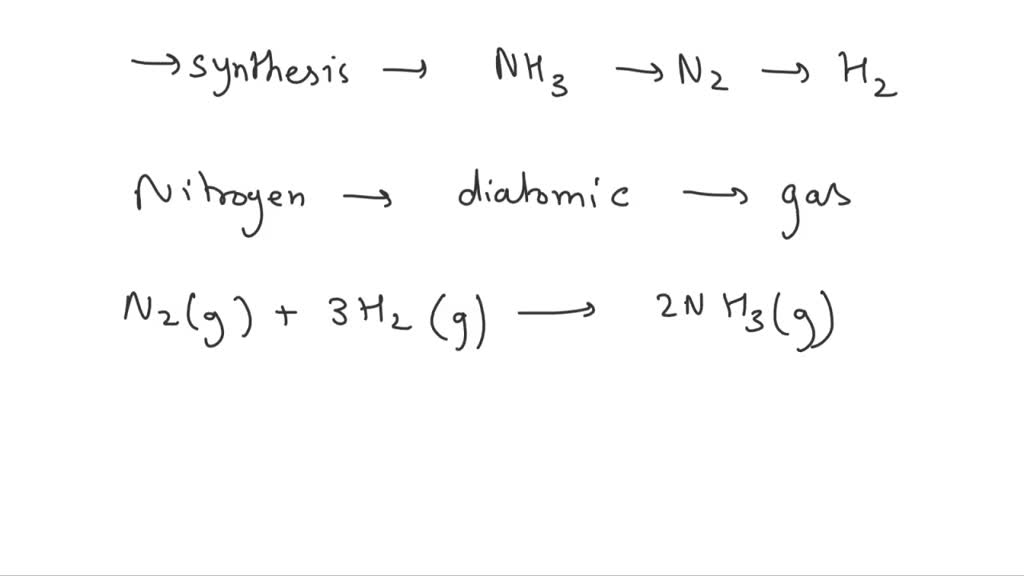 → synthesis → NH₃ → N₂ → H₂
Nitrogen → diatomic → gas
N₂(g) + 3H₂(g) → 2NH₃(g)